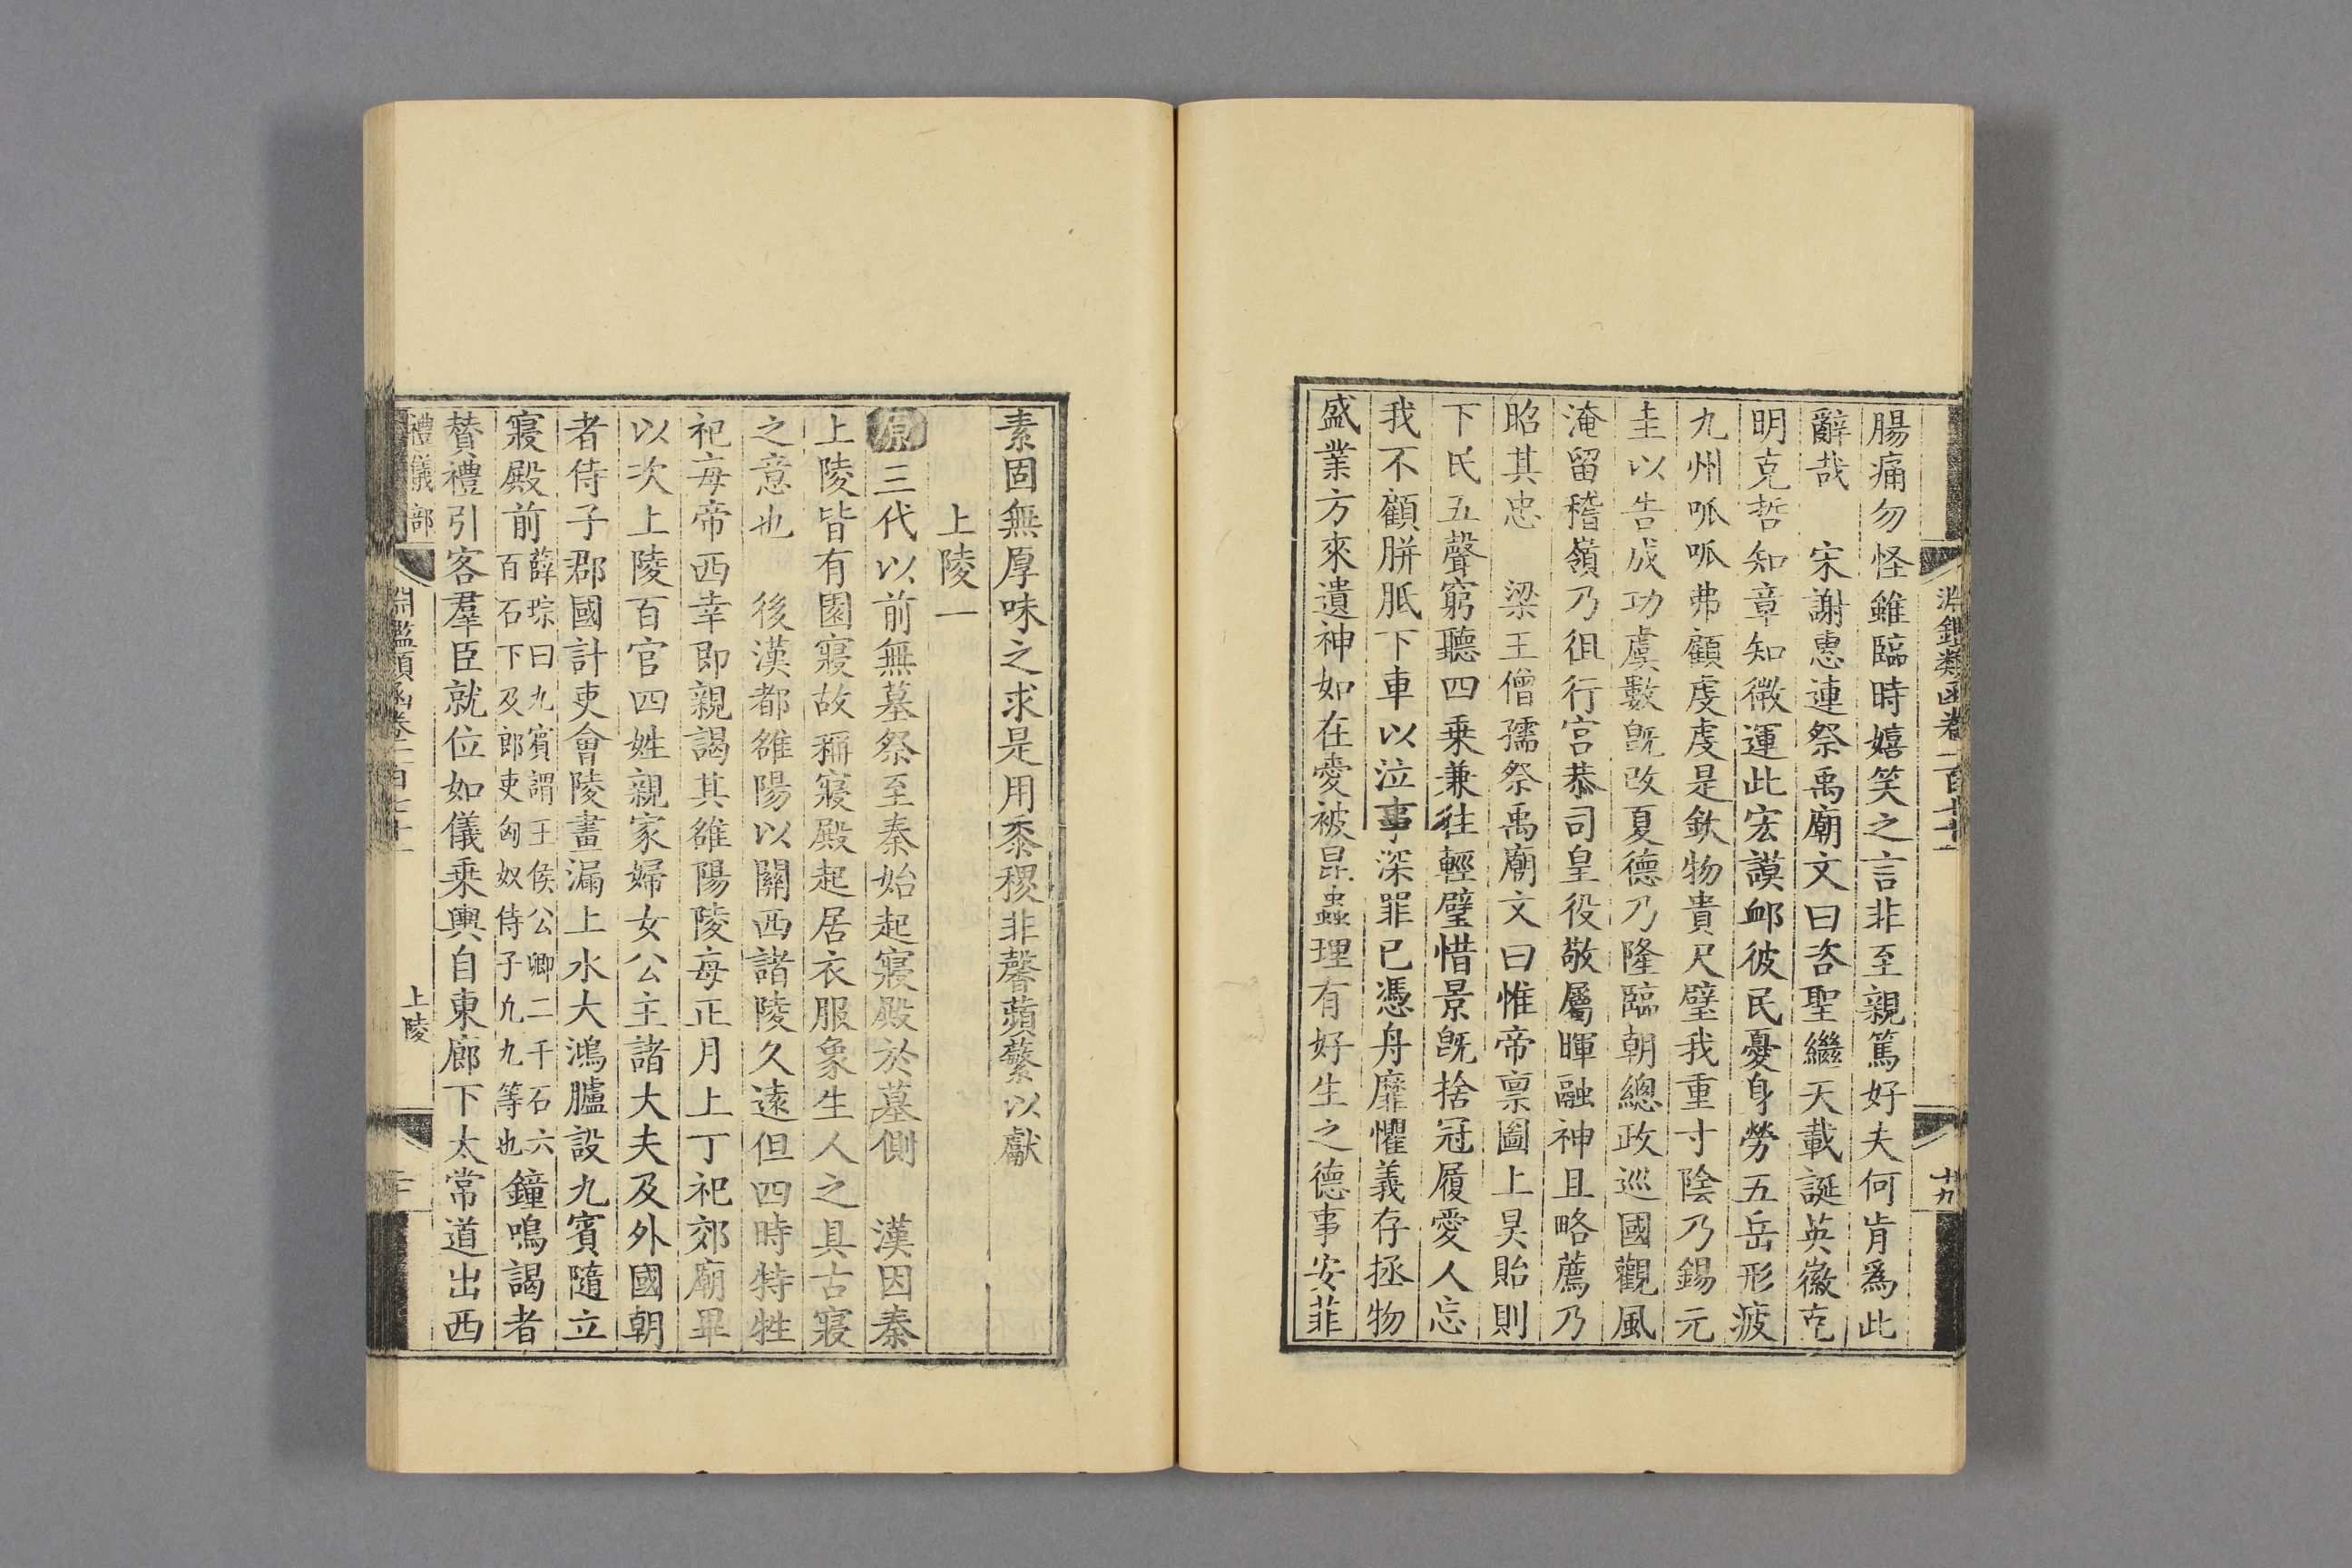 腸痛勿怪雖臨時嬉笑之言非至親篤好夫何肯爲此
辭哉　宋謝惠連祭禹廟文曰咨聖繼天載誕英徽克
明克哲知章知微運此宏謨卹彼民憂身勞五岳形疲
九州呱呱弗顧虔虔是欽物貴尺璧我重寸陰乃錫元
圭以告成功虞數旣改夏德乃隆臨朝總政巡國觀風
淹留稽嶺乃徂行宮恭司皇役敬屬暉融神且略薦乃
昭其忠　梁王僧孺祭禹廟文曰惟帝禀圖上昊貽則
下民五聲窮聽四乗兼往輕璧惜景旣捨冠履愛人忘
我不顧胼胝下車以泣事深罪已憑舟靡懼義存拯物
盛業方來遺神如在愛被昆蟲理有好生之德事安菲
淵鑑類函卷一百七十一
十九
素固無厚味之求是用黍稷非馨蘋蘩以獻
上陵一
原三代以前無墓祭至秦始起寢殿於墓側　漢因秦
上陵皆有園寢故稱寢殿起居衣服象生人之具古寢
之意也　後漢都雒陽以關西諸陵久遠但四時特牲
祀每帝西幸即親謁其雒陽陵每正月上丁祀郊廟畢
以次上陵百官四姓親家婦女公主諸大夫及外國朝
者侍子郡國計吏會陵晝漏上水大鴻臚設九賓隨立
寢殿前薛琮曰九賓謂王侯公卿二千石六百石下及郎吏匈奴侍子凢九等也鐘鳴謁者
贊禮引客羣臣就位如儀乗輿自東廊下太常道出西
禮儀部
淵鑑類函卷一百七十一
上陵